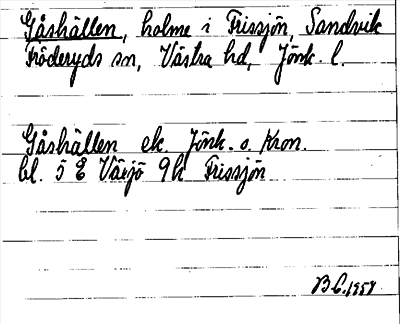 Gåshällen, holme i Frissjön, Sandvik
Fröderyds sn, Västra hd, Jönk. l.
Gåshällen ek. Jönk. o. Kron.
bl. 5 E Växjö 9h Frissjön